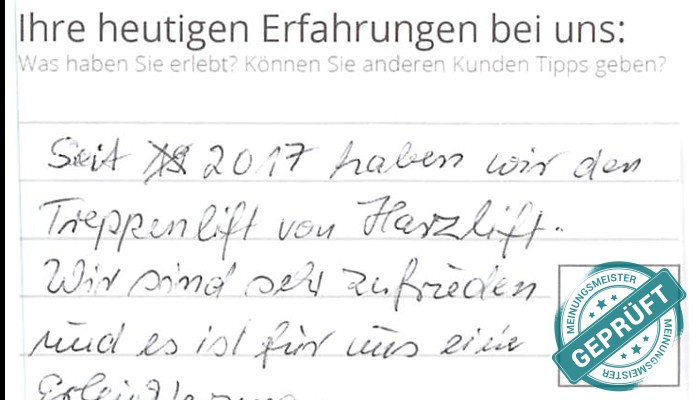 Ihre heutigen Erfahrungen bei uns:
Was haben Sie erlebt? Können Sie anderen Kunden Tipps geben?
Seit 2017 haben wir den
Treppenlift von Harzlift.
Wir sind sehr zufrieden
und es ist für uns eine
MEINUNGSMEISTER
GEPRÜFT
MEINUNGSMEISTER